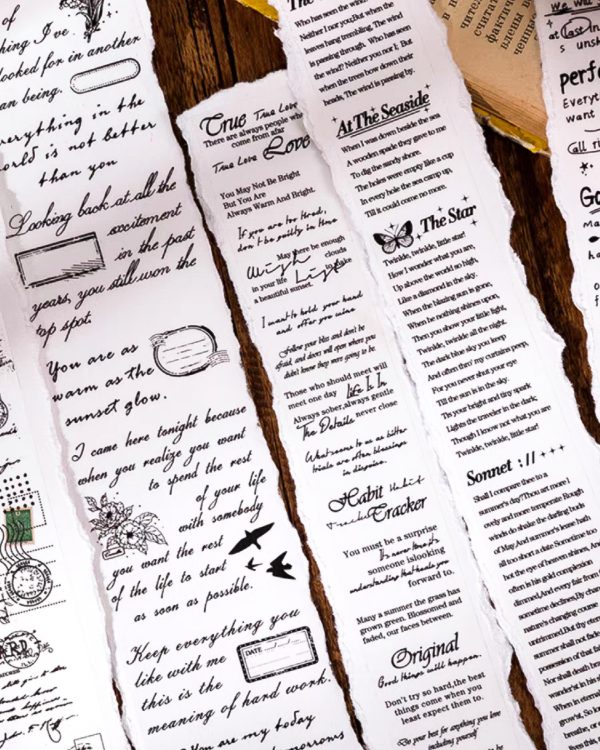 of
thing I've
looked for in another
an being.
everything in the
world is not better
than you
Looking back at all the
excitement
in the past
years, you still won the
top spot.
You are as
warm as the
sunset glow.
I came here tonight because
when you realize you want
to spend the rest
of your life
with somebody
you want the rest
of the life to start
as soon as possible.
Keep everything you
like with me
DATE
this is the
meaning of hard work.
You are my today
tomorrows
True True Love
There are always people who
come from afar
True Love Love
You May Not Be Bright
But You Are
Always Warm And Bright.
If you are too tired,
don't be guilty in time
May there be enough
Wish clouds
in your life Life to make
a beautiful sunset.
I want to hold your hand
and offer you wine
Follow your bliss and don't be
afraid, and doors will open where you
didn't know they were going to be.
Those who should meet will
meet one day Life Is In
Always sober,always gentle
The Details never close
What seems to us as bitter
trials are often blessings
in disguise.
Habit Habit
Tracker Tracker
You must be a surprise
It's never too late
someone islooking
understanding that heals you
forward to.
Many a summer the grass has
grown green. Blossomed and
faded, our faces between.
Original
Good things will happen.
Don't try so hard,the best
things come when you
least expect them to.
Do your best for anything you love
The
Who has seen the wind
Neither I nor you.But when the
leaves hang trembling. The wind
is passing through. Who has seen
the wind? Neither you nor I. But
when the trees bow down their
heads. The wind is passing by.
At The Seaside
When I was down beside the sea
A wooden spade they gave to me
To dig the sandy shore.
The holes were empty like a cup
In every hole the sea camp up,
Till it could come no more.
The Star
Twinkle, twinkle, little star!
How I wonder what you are,
Up above the world so high,
Like a diamond in the sky.
When the blazing sun is gone,
When he nothing shines upon,
Then you show your little light,
Twinkle, twinkle all the night.
The dark blue sky you keep
And often thro' my curtains peep,
For you never shut your eye
Till the sun is in the sky.
Tis your bright and tiny spark
Lights the traveler in the dark
Though I know not what you are
Twinkle, twinkle, little star!
Sonnet
Shall I compare thee to a
summer's day?Thou art more l
ovely and more temperate:Rough
winds do shake the darling buds
of May,And summer's lease hath
all too short a date:Sometime too
hot the eye of heaven shines, An
often is his gold complexion
dimmed:And every fair from
sometime declines,By chance
nature's changing course
untrimmed:But thy eternal
summer shall not fade
possession of that fair
Nor shall death brag
wander'st in his
When in eternal
считат
фактич
влены в
ченные
we w
at Last
unsh
perfe
Everyt
want
Call ri
Go